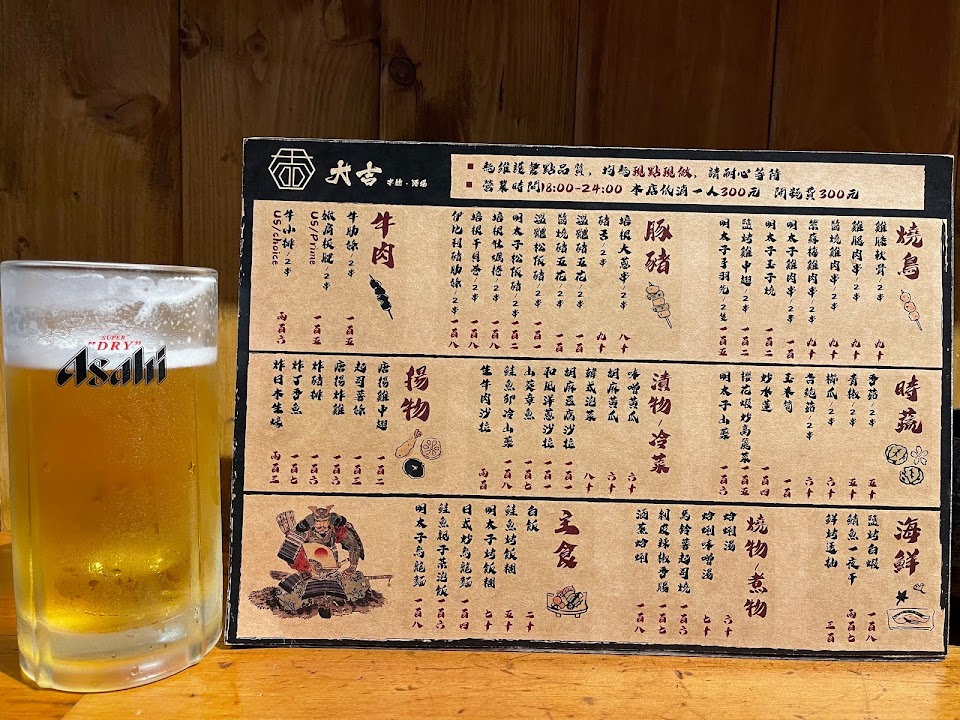 SUPER
"DRY"
Asahi
大吉
串燒·酒場
為維護餐點品質，均為現點現做，請耐心等待
營業時間18:00-24:00 本店低消一人300元 開瓶費300元
燒鳥
雞膝軟骨/2串 九十
雞腿肉串/2串 九十
醬燒雞肉串/2串 九十
紫蘇梅雞肉串/2串 九十
明太子雞肉串/2串 一百
明太子玉子燒 一百二
鹽烤雞中翅/2串 一百二
明太子手羽先/2隻 一百五
豚豬
培根大蔥串/2串 八十
豬舌/2串 九十
溫體豬五花/2串 一百
醬燒豬五花/2串 一百
溫體松阪豬/2串 一百一
明太子松阪豬/2串 一百二
培根牡蠣捲/2串 一百八
培根干貝卷/2串 一百八
伊比利豬肋條/2串 一百八
牛肉
牛肋條/2串 一百五
嫩肩板腱/2串 一百五
US/Prime
牛小排/2串 兩百六
US/choice
時蔬
香菇/2串 五十
青椒/2串 五十
櫛瓜/2串 六十
杏鮑菇/2串 六十
玉米筍 一百
炒水蓮 一百四
櫻花蝦炒高麗菜 一百五
明太子山藥 一百八
漬物/冷菜
味噌黃瓜 六十
胡麻黃瓜 六十
韓式泡菜 八十
胡麻豆腐沙拉 一百一
和風洋蔥沙拉 一百一
山藥章魚 一百七
鮭魚卵冷山藥 一百八
生牛肉沙拉 兩百
揚物
唐揚雞中翅 一百二
起司薯條 一百三
唐揚炸雞 一百六
炸豬排 一百六
炸丁香魚 一百七
炸日本生蠔 兩百三
海鮮
鹽烤白蝦 一百八
鯖魚一夜干 兩百七
鮮烤透抽 三百
燒物/煮物
蛤蜊湯 六十
蛤蜊味噌湯 七十
馬鈴薯起司燒 一百六
剝皮辣椒香腸 一百八
酒蒸蛤蜊 一百八
主食
白飯 二十
鮭魚烤飯糰 五十
明太子烤飯糰 七十
日式炒烏龍麵 一百四
鮭魚親子茶泡飯 一百六
明太子烏龍麵 一百八